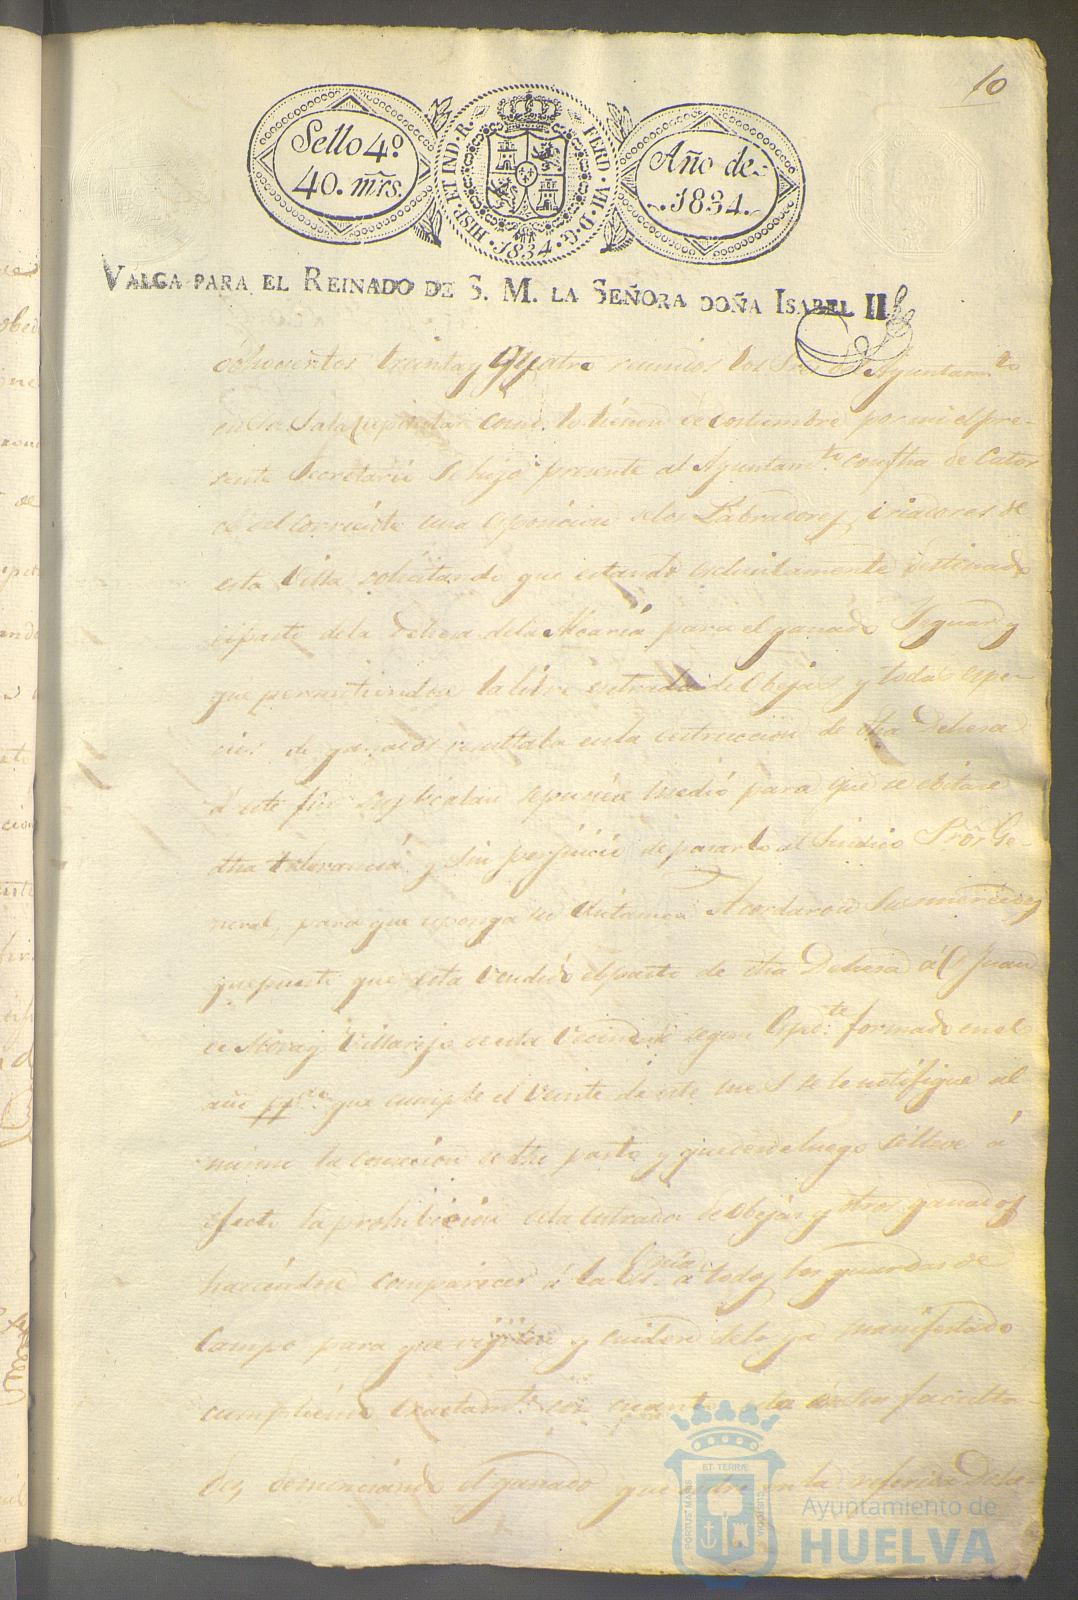 10
Sello 4º
40. mrs.
HISP. ET IND. R. FERD. VII. D. G. 1834.
Año de
1834.
VALGA PARA EL REINADO DE S. M. LA SEÑORA DOÑA ISABEL II
ochocientos treinta y Quatro reunidos los Sres del Ayuntamto
en la Sala Capitular como lo tienen de costumbre por mi el pre-
sente Secretario se hizo presente al Ayuntamto con fha de Cator
ce del corriente una esposicion de los Labradores, criadores de
esta Villa solicitando que estando esclusivamente destinado
el pasto de la Dehesa de la Alcaria para el ganado Yeguar y
que permitiendose la libre entrada de Obejas y todas espe-
cies de ganados resultaba en la destruccion de dha Dehesa
á este fin suplicaban medio para que se ebitase
dha tolerancia y sin perjuicio de pasarlo al Sindico Pror Ge-
neral, para que esponga su dictamen Acordaron sus mercedes
que puesto que está vendido el pasto de dha Dehesa á Dn Juan
de Mora y Villarejo de esta Vecindad segun Espte formado en el
año que cumple el veinte de este mes se le notifique al
mismo la de dho pasto y que desde luego se lleve á
efecto la prohibicion de la entrada de Obejas y otros ganados
haciendose comparecer á la Esnia á todos los guardas de
Campo para que vigilen y cuiden de lo ya manifestado
cumpliendo exactamte en cuanto está facult
des, denunciando el ganado que entre en la referida Dehe-
PORTUS MARIS ET TERRAE CUSTODIA
Ayuntamiento de
HUELVA